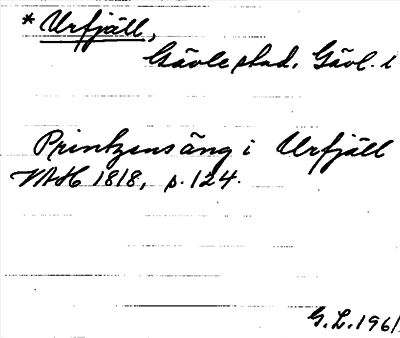 * Urfjäll,
Gävle stad. Gävl. i
Printzens äng i Urfjäll
1818, s. 124.
G. L. 1961